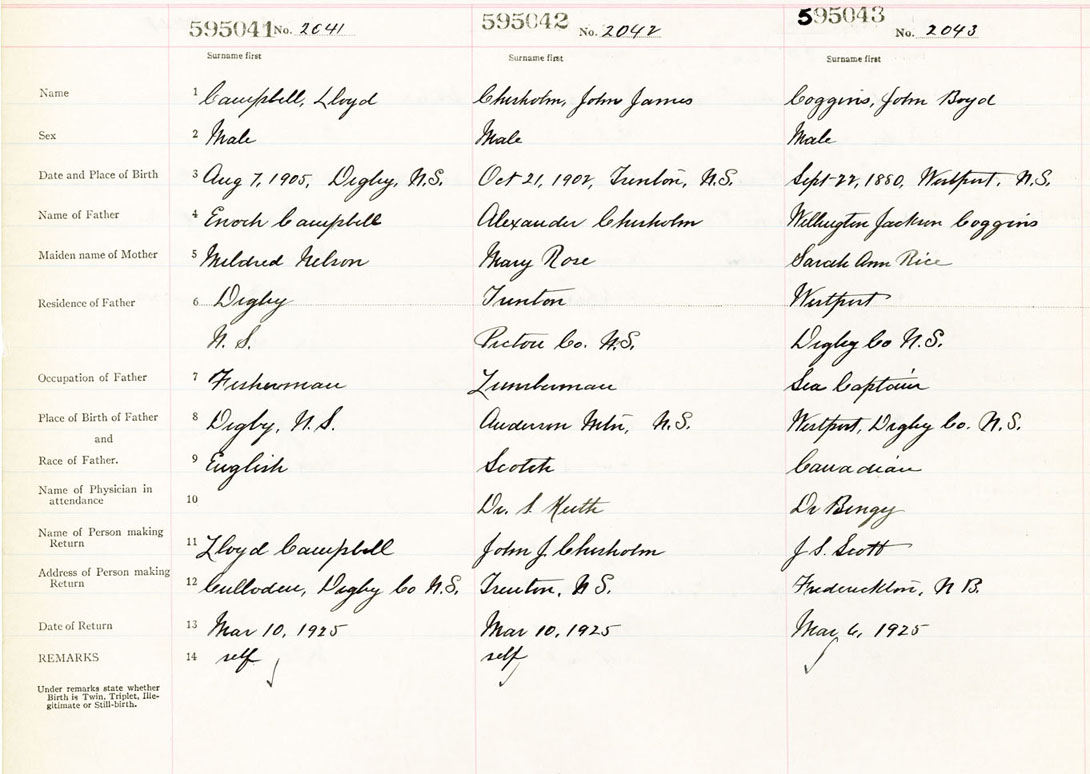 595041 No. 2041 595042 No. 2042 595043 No. 2043
Surname first Surname first Surname first
Name 1 Campbell, Lloyd Chisholm, John James Coggins, John Boyd
Sex 2 Male Male Male
Date and Place of Birth 3 Aug 7, 1905, Digby, N.S. Oct 21, 1902, Trenton, N.S. Sept 22, 1880, Westport, N.S.
Name of Father 4 Enoch Campbell Alexander Chisholm Wellington Jackson Coggins
Maiden name of Mother 5 Mildred Nelson Mary Rose Sarah Ann Rice
Residence of Father 6 Digby Trenton Westport
N.S. Pictou Co. N.S. Digby Co N.S.
Occupation of Father 7 Fisherman Lumberman Sea Captain
Place of Birth of Father 8 Digby, N.S. Anderson Mtn, N.S. Westport, Digby Co. N.S.
and
Race of Father. 9 English Scotch Canadian
Name of Physician in
attendance 10 Dr. S. Keith Dr
Name of Person making
Return 11 Lloyd Campbell John J. Chisholm J. S. Scott
Address of Person making
Return 12 Culloden, Digby Co N.S. Trenton, N.S. Frederickton, N B.
Date of Return 13 Mar 10, 1925 Mar 10, 1925 Mar 6, 1925
REMARKS 14 self self
Under remarks state whether
Birth is Twin, Triplet, Ille-
gitimate or Still-birth.